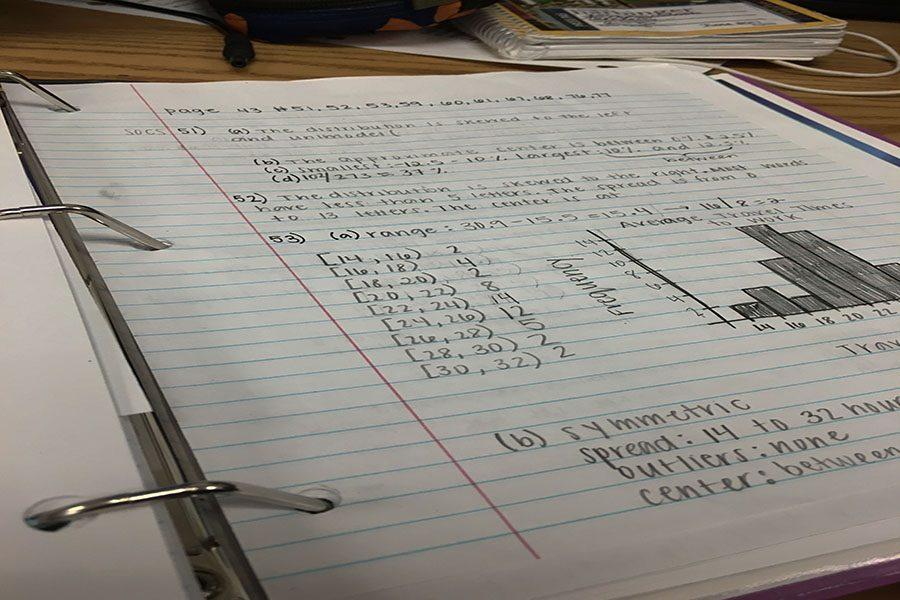 page 43 #51, 52, 53, 59, 60, 61, 67, 68, 76, 77
SOCS 51) (a) The distribution is skewed to the left
and unimodel
(b) The approximate center is between 0% & 2.5%
(c) smallest = -12.5 - -10% largest: 10% and 12.5%
between
(d) 101/273 = 37%
52) The distribution is skewed to the right. Most words
have less than 5 letters. The spread is from 0
to 13 letters. The center is at
53) (a) range: 30.9 - 15.5 = 15.4 → 16/8 = 2
[14, 16) 2
[16, 18) 4
[18, 20) 2
[20, 22) 8
[22, 24) 14
[24, 26) 12
[26, 28)
[28, 30) 2
[30, 32) 2
Average Travel Times
to work
Frequency
14
12
10
8
6
4
2
14 16 18 20 22
Trav
(b) symmetric
spread: 14 to 32 hour
outliers: none
center: between